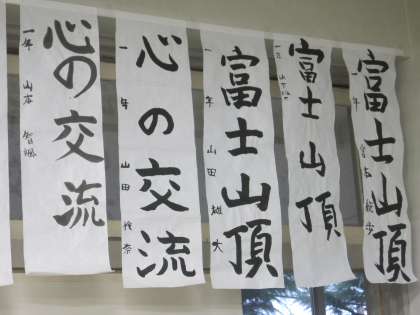 富士山頂
一年
富士山頂
富士山頂
一年 山田 雄大
心の交流
一年 山田
心の交流
一年 山本